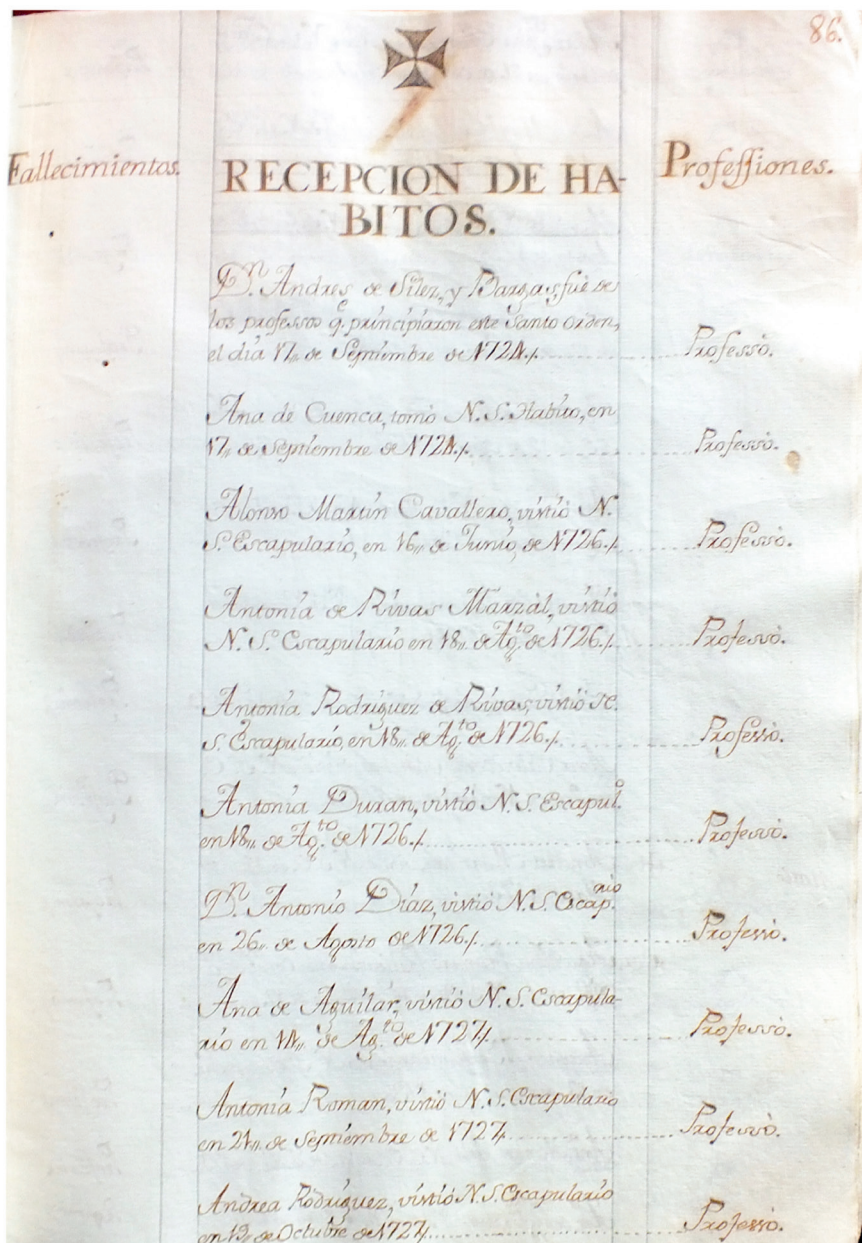 86.
Fallecimientos.
RECEPCION DE HA-
BITOS.
Professiones.
Dn. Andres de Silez, y Bargas, fué de
los professos q.e principiaron este Santo Orden,
el dia 17,, de Septiembre de 1724./.
Professò.
Ana de Cuenca, tomó N. S. Habito, en
17,, de Septiembre de 1724./.
Professò.
Alonso Martin Cavallero, vistió N.
S.o Escapulario, en 16,, de Junio, de 1726./.
Professò.
Antonia de Rivas Marzál, vistió
N. S.o Escapulario en 18,, de Ag.to de 1726./.
Professò.
Antonia Rodriguez de Rivas, vistió N.
S. Escapulario, en 18,, de Ag.to de 1726./.
Professò.
Antonia Duran, vistió N. S. Escapul.o
en 18,, de Ag.to de 1726./.
Professò.
Dn. Antonio Díaz, vistió N. S. Escap.rio
en 26,, de Agosto de 1726./.
Professò.
Ana de Aguilar, vistió N. S. Escapula-
rio en de Ag.to de 1727/.
Professò.
Antonia Roman, vistió N. S. Escapulario
en 21,, de Septiembre de 1727/.
Professò.
Andrea Rodriguez, vistió N. S. Escapulario
en de Octubre de 1727/.
Professò.